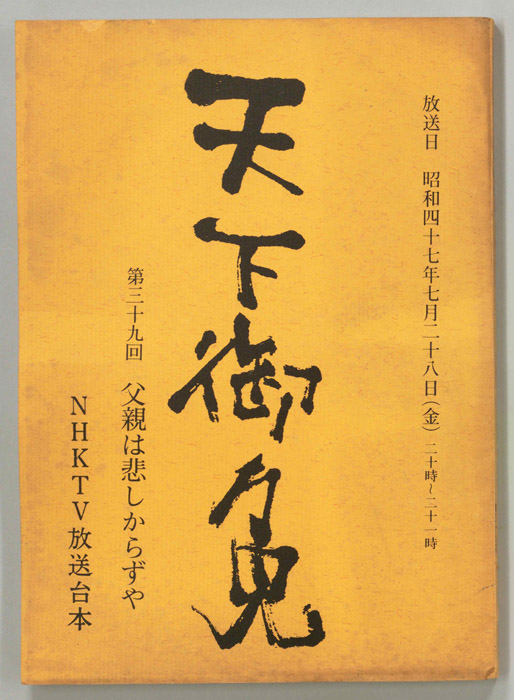 放送日　昭和四十七年七月二十八日(金)二十時~二十一時
天下御免
第三十九回　父親は悲しからずや
NHKTV放送台本